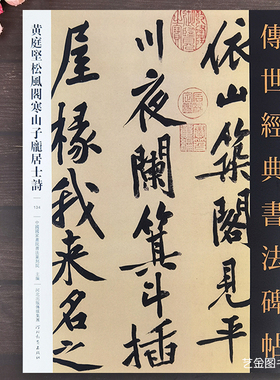 傳世經典書法碑帖
依山築閣見平
川夜闌箕斗插
屋椽我來名之
黄庭堅松風閣寒山子龐居士詩
134
藝金图书